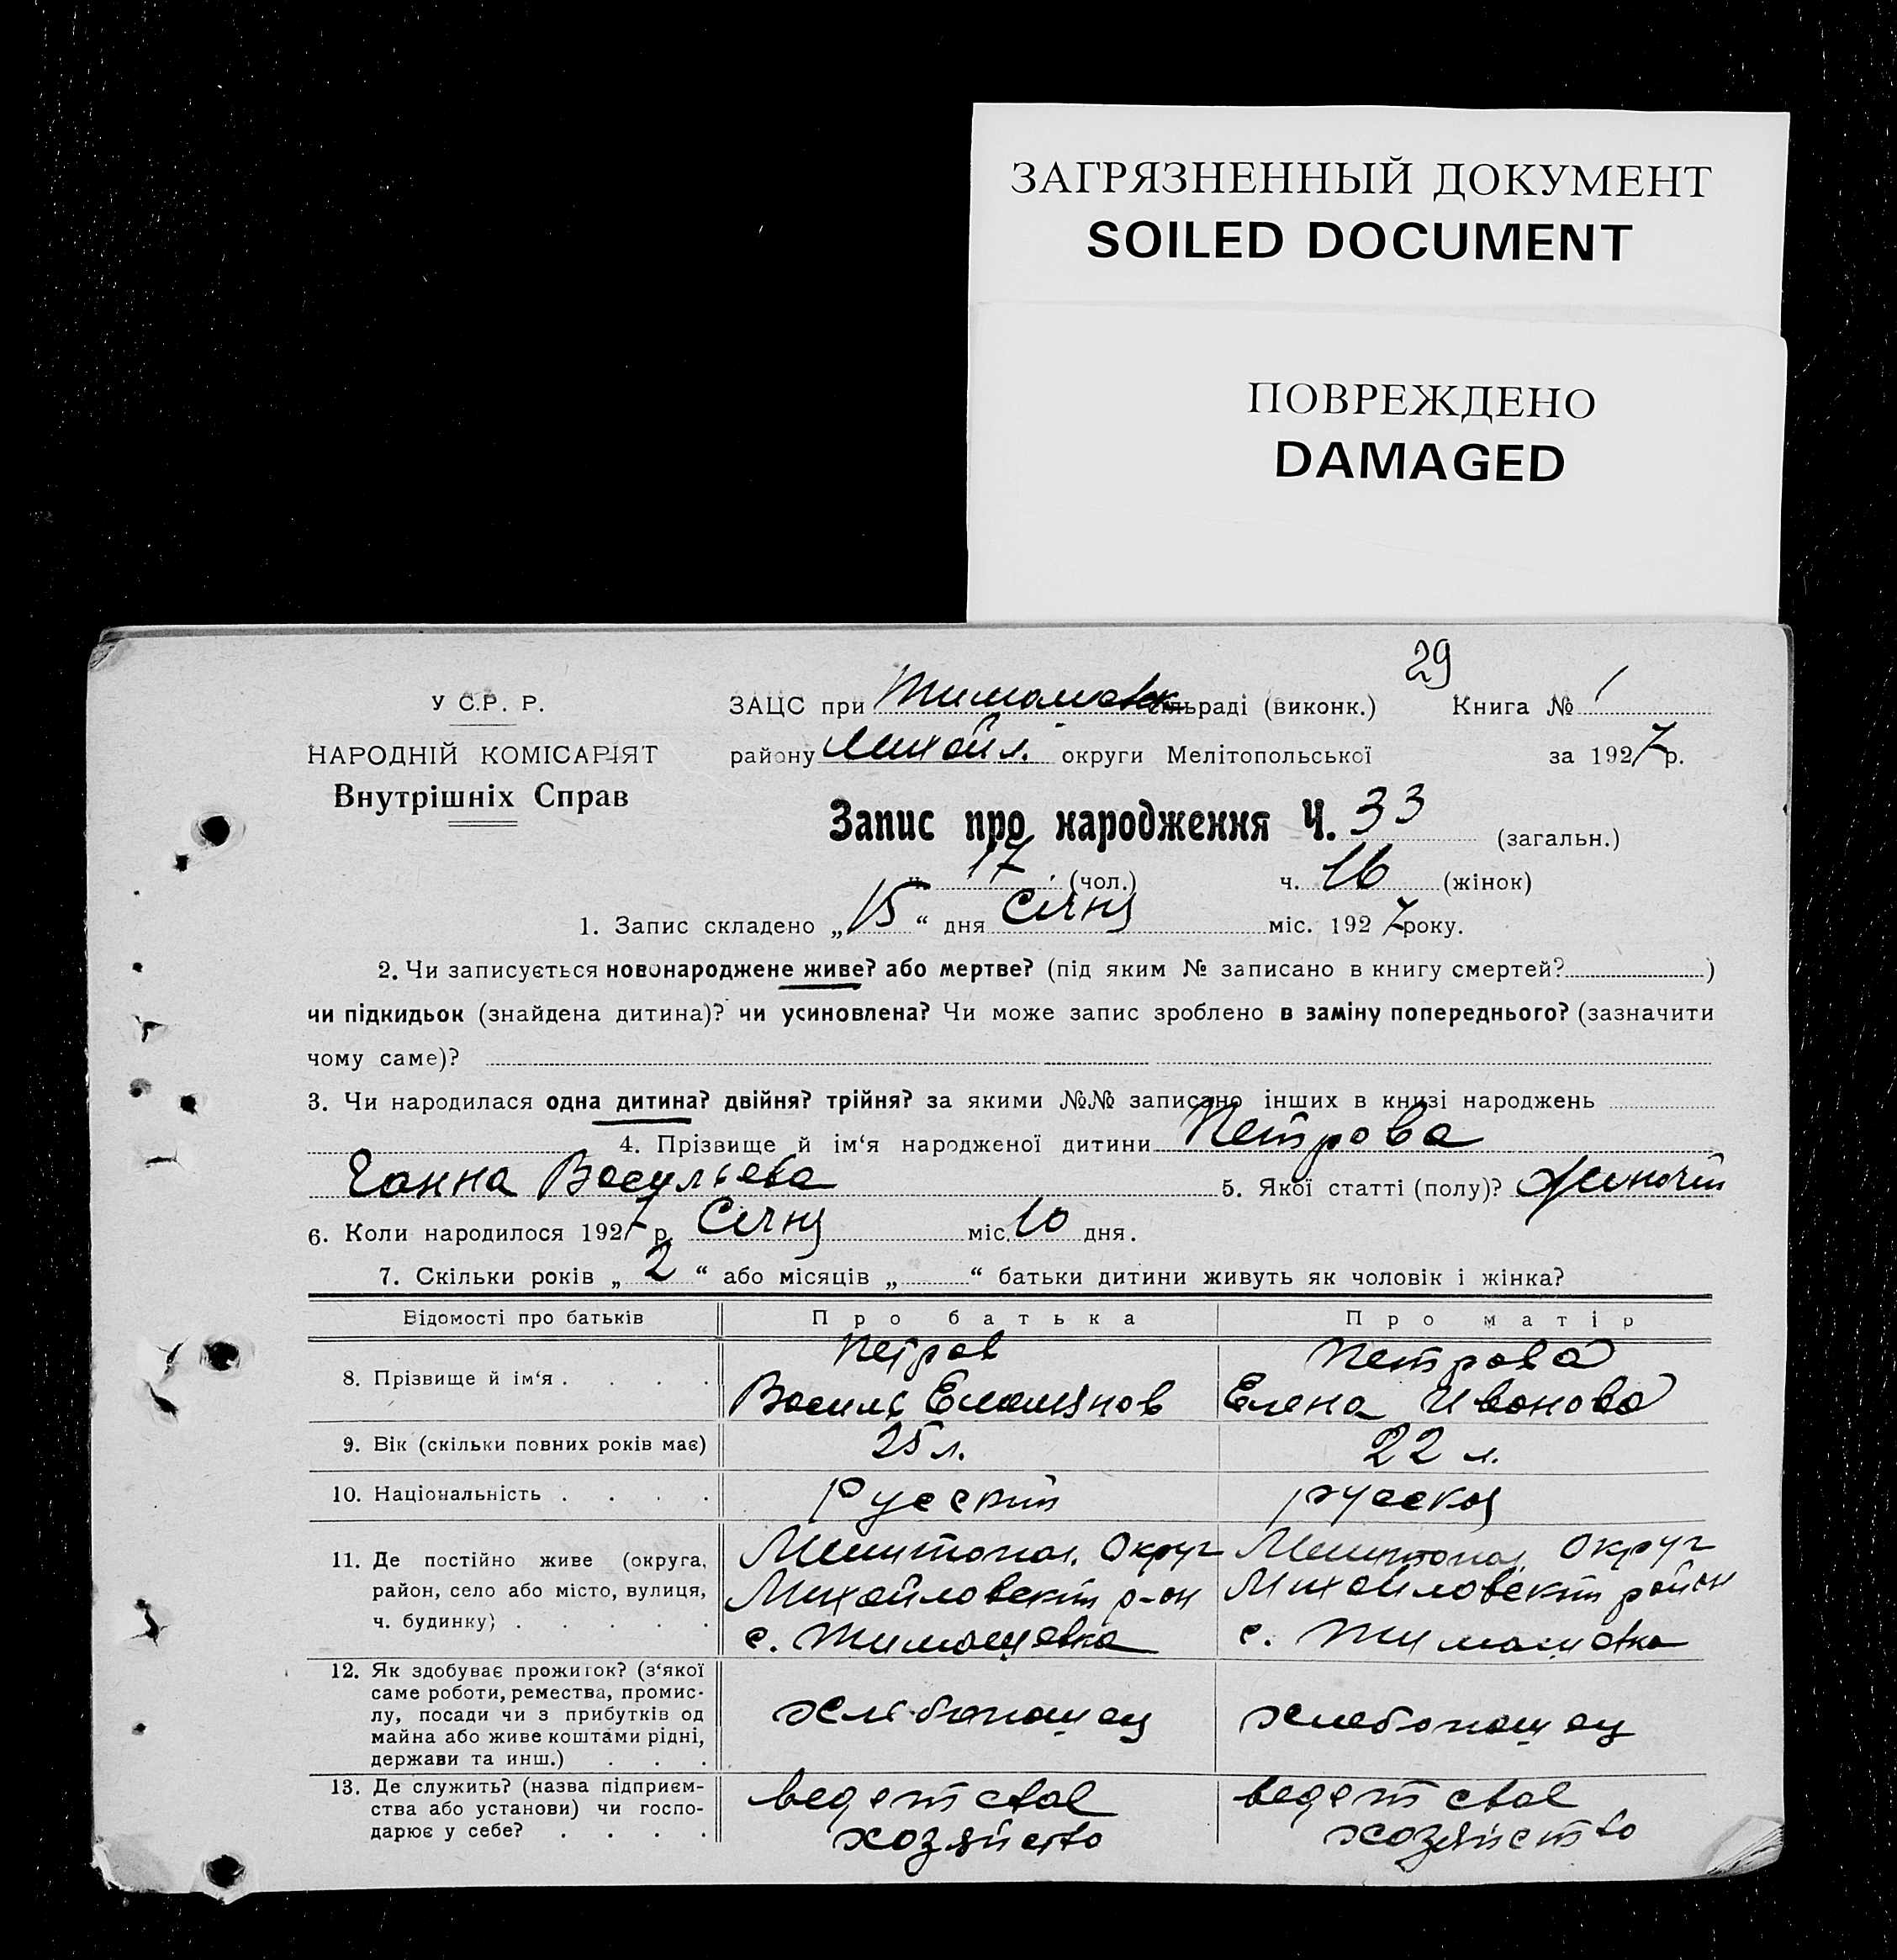 ЗАГРЯЗНЕННЫЙ ДОКУМЕНТ
SOILED DOCUMENT
ПОВРЕЖДЕНО
DAMAGED
29
У С.Р. Р.
НАРОДНІЙ КОМІСАРІЯТ
Внутрішніх Справ
ЗАЦС при Тимашевск сільраді (виконк.) Книга № 1
району Михайл. округи Мелітопольської за 1927 р.
Запис про народження Ч. 33 (загальн.)
ч. 17 (чол.) ч. 16 (жінок)
1. Запис складено „15“ дня Січня міс. 1927 року.
2. Чи записується новонароджене живе? або мертве? (під яким № записано в книгу смертей? )
чи підкидьок (знайдена дитина)? чи усиновлена? Чи може запис зроблено в заміну попереднього? (зазначити
чому саме)?
3. Чи народилася одна дитина? двійня? трійня? за якими №№ записано інших в книзі народжень
4. Прізвище й ім‘я народженої дитини Петрова
Ганна Васильева 5. Якої статті (полу)? Жиночій
6. Коли народилося 1927 р. Січня міс. 10 дня.
7. Скільки років „2“ або місяців „ “ батьки дитини живуть як чоловік і жінка?
Відомості про батьків Про батька Про матір
8. Прізвище й ім‘я . . . . Петров Василь Емельянов Петрова Елена Иванова
9. Вік (скільки повних років має) 25 л. 22 л.
10. Національність . . . . Русский русская
11. Де постійно живе (округа, район, село або місто, вулиця, ч. будинку) . . . . . Мелитопол. Округ Михайловский р-он с. Тимашевка Мелитопол. Округ Михайловский район с. Тимашевка
12. Як здобуває прожиток? (з‘якої саме роботи, ремества, промислу, посади чи з прибутків од майна або живе коштами рідні, держави та инш.) . . . хлебопашец хлебопашец
13. Де служить? (назва підприємства або установи) чи господарює у себе? . . . . ведет своё хозяйство ведет своё хозяйство